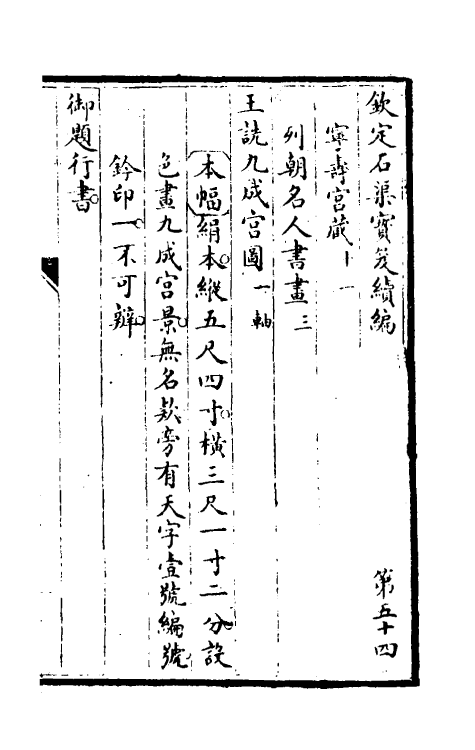 欽定石渠寶笈續編 第五十四
寧壽宮藏十一
列朝名人書畫三
王詵九成宮圖一軸
本幅絹本縱五尺四寸橫三尺一寸二分設
色畫九成宮景無名款旁有天字壹號編號
鈐印一不可辨
御題行書